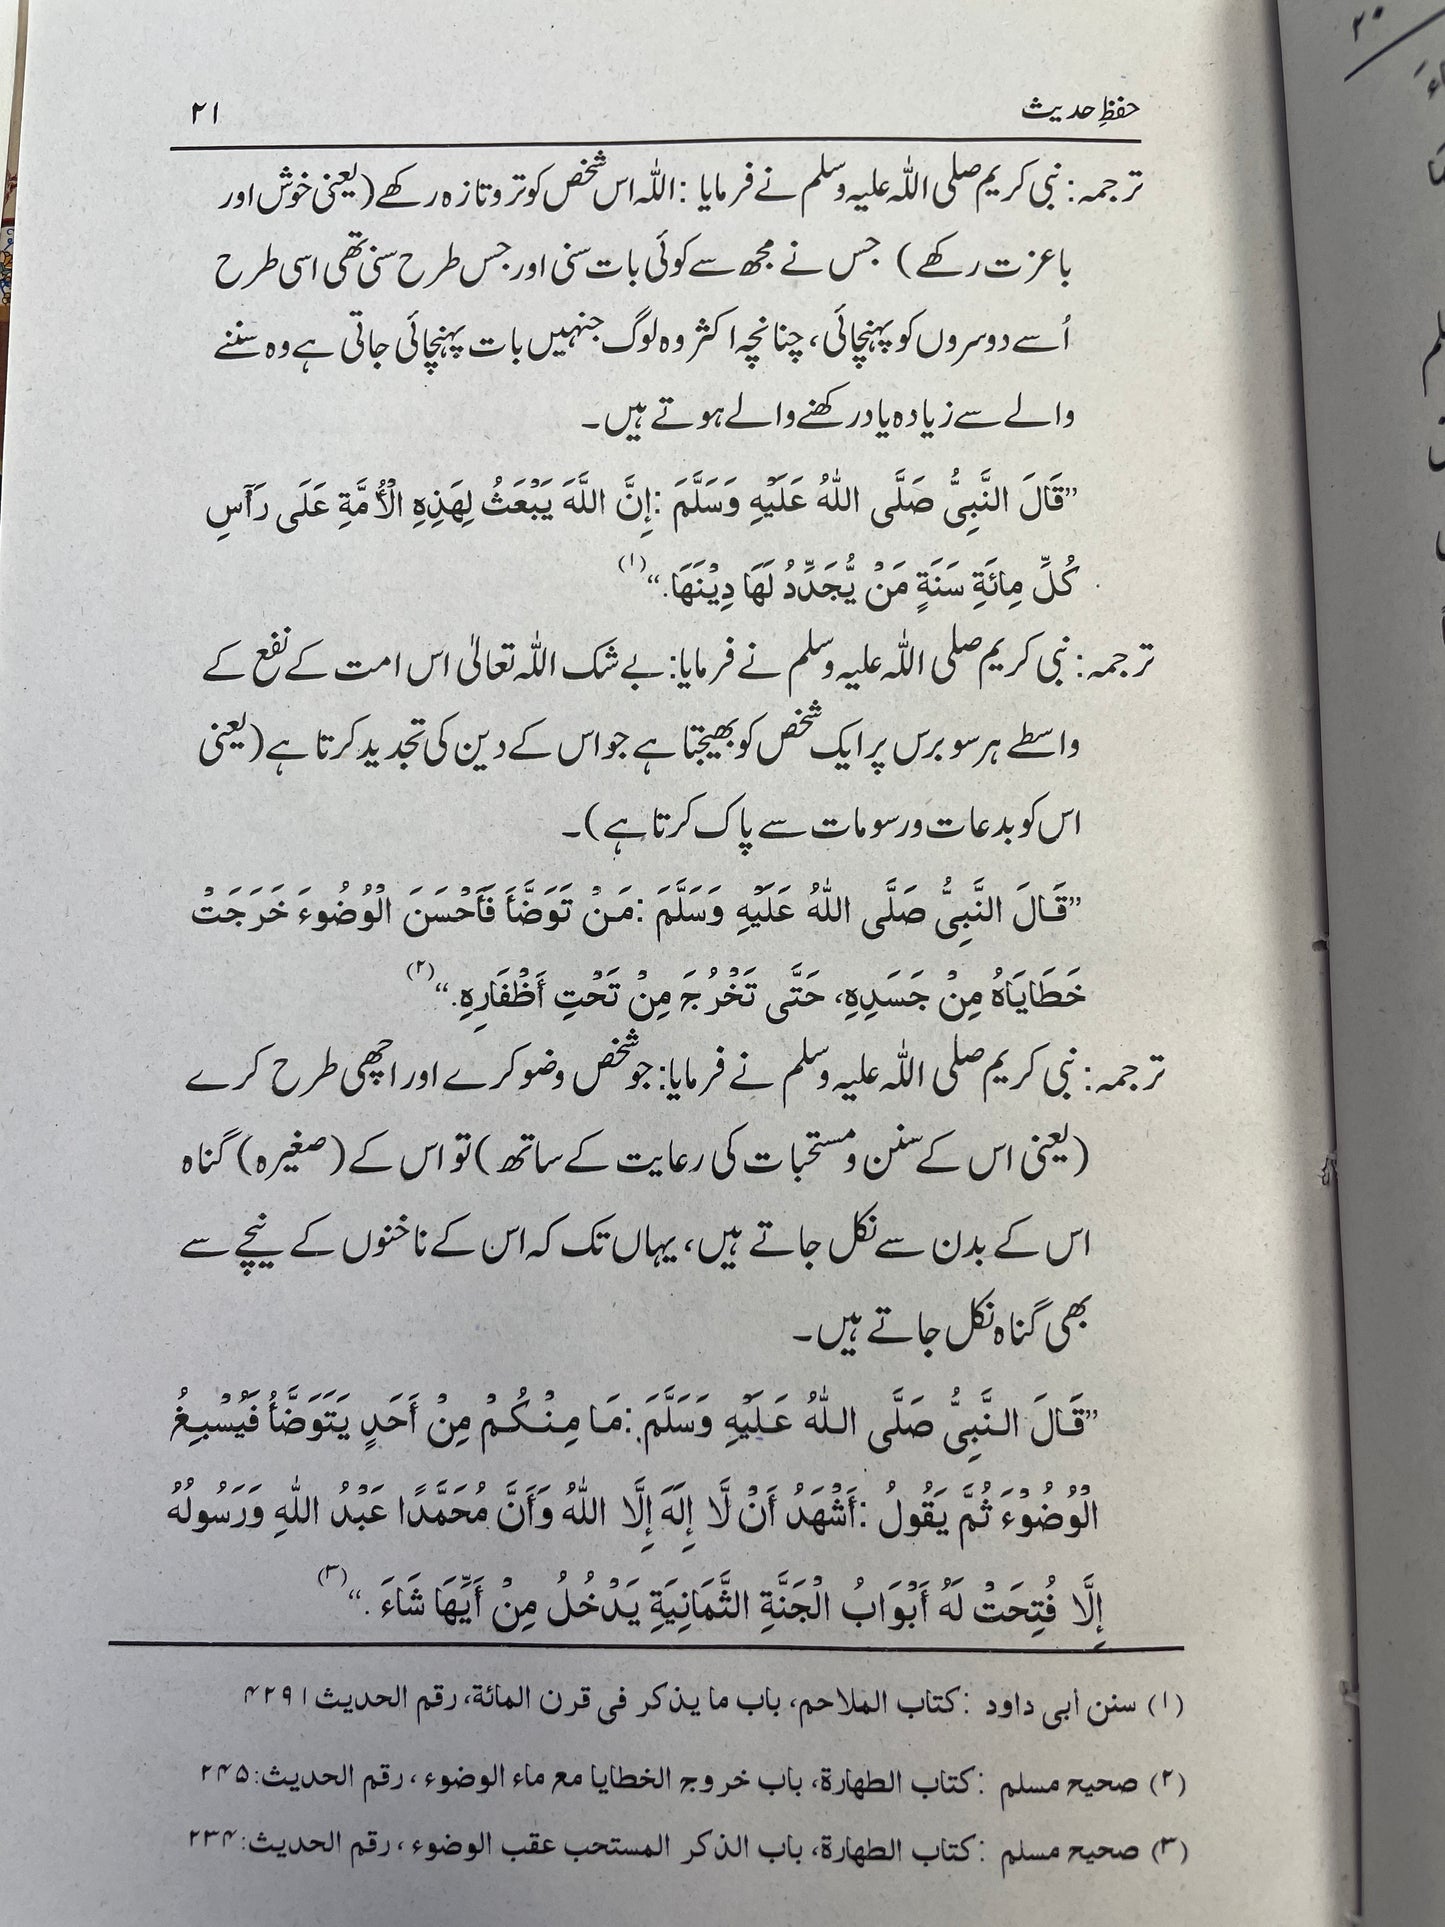 حفظِ حدیث ۲۱
ترجمہ: نبی کریم صلی اللہ علیہ وسلم نے فرمایا: اللہ اس شخص کو تروتازہ رکھے (یعنی خوش اور
باعزت رکھے) جس نے مجھ سے کوئی بات سنی اور جس طرح سنی تھی اسی طرح
اُسے دوسروں کو پہنچائی، چنانچہ اکثر وہ لوگ جنہیں بات پہنچائی جاتی ہے وہ سننے
والے سے زیادہ یاد رکھنے والے ہوتے ہیں۔
”قَالَ النَّبِیُّ صَلَّی اللّٰہُ عَلَیْہِ وَسَلَّمَ :إِنَّ اللَّہَ یَبْعَثُ لِھَذِہِ الْأُمَّةِ عَلَی رَأْسِ
کُلِّ مِائَةِ سَنَةٍ مَنْ یُّجَدِّدُ لَھَا دِیْنَھَا.“(۱)
ترجمہ: نبی کریم صلی اللہ علیہ وسلم نے فرمایا: بے شک اللہ تعالیٰ اس امت کے نفع کے
واسطے ہر سو برس پر ایک شخص کو بھیجتا ہے جو اس کے دین کی تجدید کرتا ہے (یعنی
اس کو بدعات ورسومات سے پاک کرتا ہے)۔
”قَالَ النَّبِیُّ صَلَّی اللّٰہُ عَلَیْہِ وَسَلَّمَ :مَنْ تَوَضَّأَ فَأَحْسَنَ الْوُضُوءَ خَرَجَتْ
خَطَایَاہُ مِنْ جَسَدِہِ، حَتَّی تَخْرُجَ مِنْ تَحْتِ أَظْفَارِہِ.“(۲)
ترجمہ: نبی کریم صلی اللہ علیہ وسلم نے فرمایا: جو شخص وضو کرے اور اچھی طرح کرے
(یعنی اس کے سنن ومستحبات کی رعایت کے ساتھ) تو اس کے (صغیرہ) گناہ
اس کے بدن سے نکل جاتے ہیں، یہاں تک کہ اس کے ناخنوں کے نیچے سے
بھی گناہ نکل جاتے ہیں۔
”قَالَ النَّبِیُّ صَلَّی اللّٰہُ عَلَیْہِ وَسَلَّمَ :مَا مِنْکُمْ مِنْ أَحَدٍ یَتَوَضَّأُ فَیُسْبِغُ
الْوُضُوْءَ ثُمَّ یَقُولُ :أَشْھَدُ أَنْ لَّا إِلَہَ إِلَّا اللّٰہُ وَأَنَّ مُحَمَّدًا عَبْدُ اللّٰہِ وَرَسُولُہُ
إِلَّا فُتِحَتْ لَہُ أَبْوَابُ الْجَنَّةِ الثَّمَانِیَةِ یَدْخُلُ مِنْ أَیِّھَا شَاءَ.“(۳)
(۱) سنن أبی داود :کتاب الملاحم، باب ما یذکر فی قرن المائة، رقم الحدیث ۴۲۹۱
(۲) صحیح مسلم :کتاب الطھارة، باب خروج الخطایا مع ماء الوضوء، رقم الحدیث:۲۴۵
(۳) صحیح مسلم :کتاب الطھارة، باب الذکر المستحب عقب الوضوء، رقم الحدیث:۲۳۴
۲۰